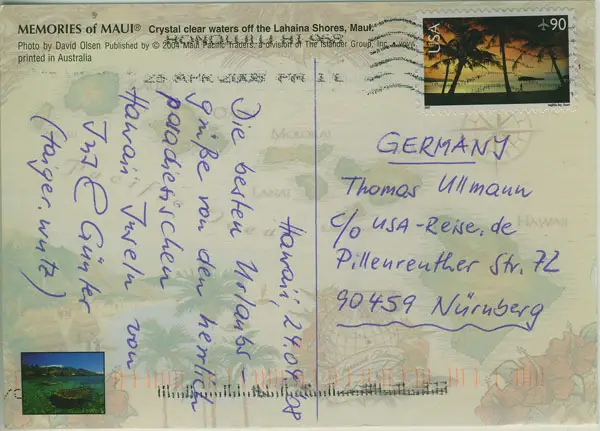 MEMORIES OF MAUI® Crystal clear waters off the Lahaina Shores, Maui.
Photo by David Olsen Published by © 2004 Maui Pacific Traders, a division of The Islander Group, Inc.
printed in Australia
HONOLULU HI 968
25 APR 2008 PM
USA
90
Hawaii, 24.04.08
Die besten Urlaubs-
grüße von den herrlich
paradiesischen
Hawaii Inseln von
Ins & Günter
(taiger.wutz)
GERMANY
Thomas Ullmann
c/o USA-Reise.de
Pillenreuther Str. 72
90459 Nürnberg
MOLOKAI
LANAI
MAUI
HAWAII